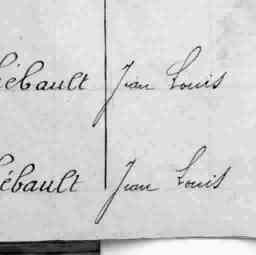 iébault Jean Louis
iébault Jean Louis